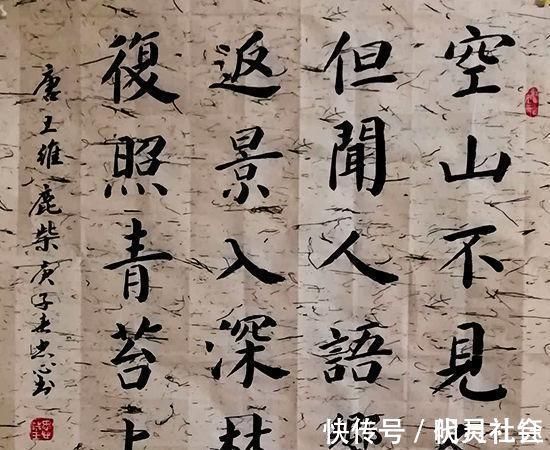 空山不見
但聞人語響
返景入深林
復照青苔上
唐王維鹿柴庚子
快传号